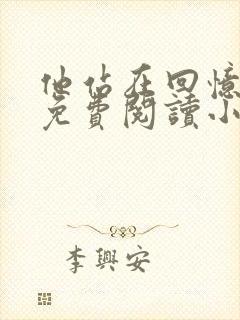 他佔在回憶
免費閱讀小
李興安